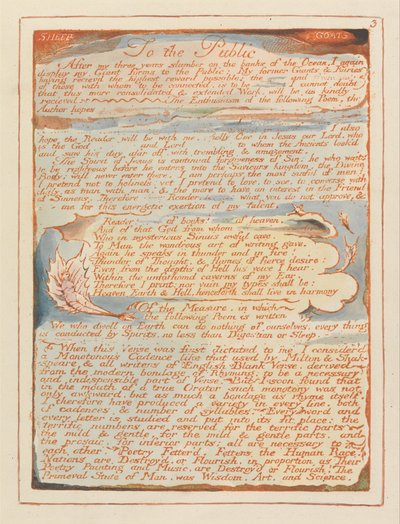 3
SHEEP
GOATS
To the Public
After my three years slumber on the banks of the Ocean, I again
display my Giant forms to the Public: My former Giants & Fairies
having reciev'd the highest reward possible: the
of those with whom to be connected, is to be I cannot doubt
that this more consolidated & extended Work, will be as kindly
recieved The Enthusiasm of the following Poem, the
Author hopes
I also
hope the Reader will be with me, wholly One in Jesus our Lord, who
is the God and Lord to whom the Ancients look'd
and saw his day afar off, with trembling & amazement.
The Spirit of Jesus is continual forgiveness of Sin: he who waits
to be righteous before he enters into the Saviours kingdom, the Divine
Body; will never enter there. I am perhaps the most sinful of men!
I pretend not to holiness! yet I pretend to love, to see, to converse with
daily, as man with man, & the more to have an interest in the Friend
of Sinners. Therefore Reader, what you do not approve, &
me for this energetic exertion of my talent.
Reader! of books! of heaven,
And of that God from whom
Who in mysterious Sinais awful cave,
To Man the wondrous art of writing gave,
Again he speaks in thunder and in fire!
Thunder of Thought, & flames of fierce desire:
Even from the depths of Hell his voice I hear,
Within the unfathomd caverns of my Ear.
Therefore I print; nor vain my types shall be:
Heaven, Earth & Hell, henceforth shall live in harmony
Of the Measure, in which
the following Poem is written
We who dwell on Earth can do nothing of ourselves, every thing
is conducted by Spirits, no less than Digestion or Sleep.
When this Verse was first dictated to me I consider'd
a Monotonous Cadence like that used by Milton & Shak-
speare & all writers of English Blank Verse, derived
from the modern bondage of Rhyming; to be a necessary
and indispensible part of Verse. But I soon found that
in the mouth of a true Orator such monotony was not
only awkward, but as much a bondage as rhyme itself.
I therefore have produced a variety in every line, both
of cadences & number of syllables. Every word and
every letter is studied and put into its fit place: the
terrific numbers are reserved for the terrific parts-
the mild & gentle, for the mild & gentle parts, and
the prosaic, for inferior parts: all are necessary to
each other. Poetry Fetter'd, Fetters the Human Race!
Nations are Destroy'd, or Flourish, in proportion as Their
Poetry Painting and Music, are Destroy'd or Flourish! The
Primeval State of Man, was Wisdom, Art, and Science.